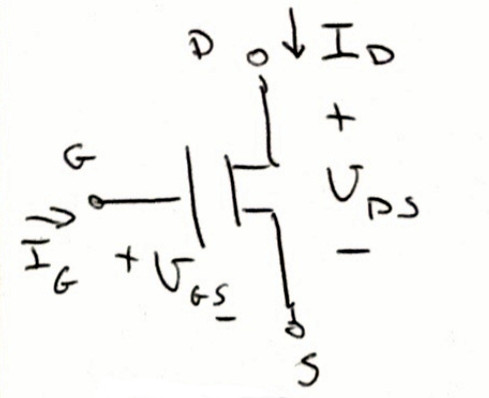 D ↓ I_D
+
G
V_DS
I_G
+ V_GS -
-
S